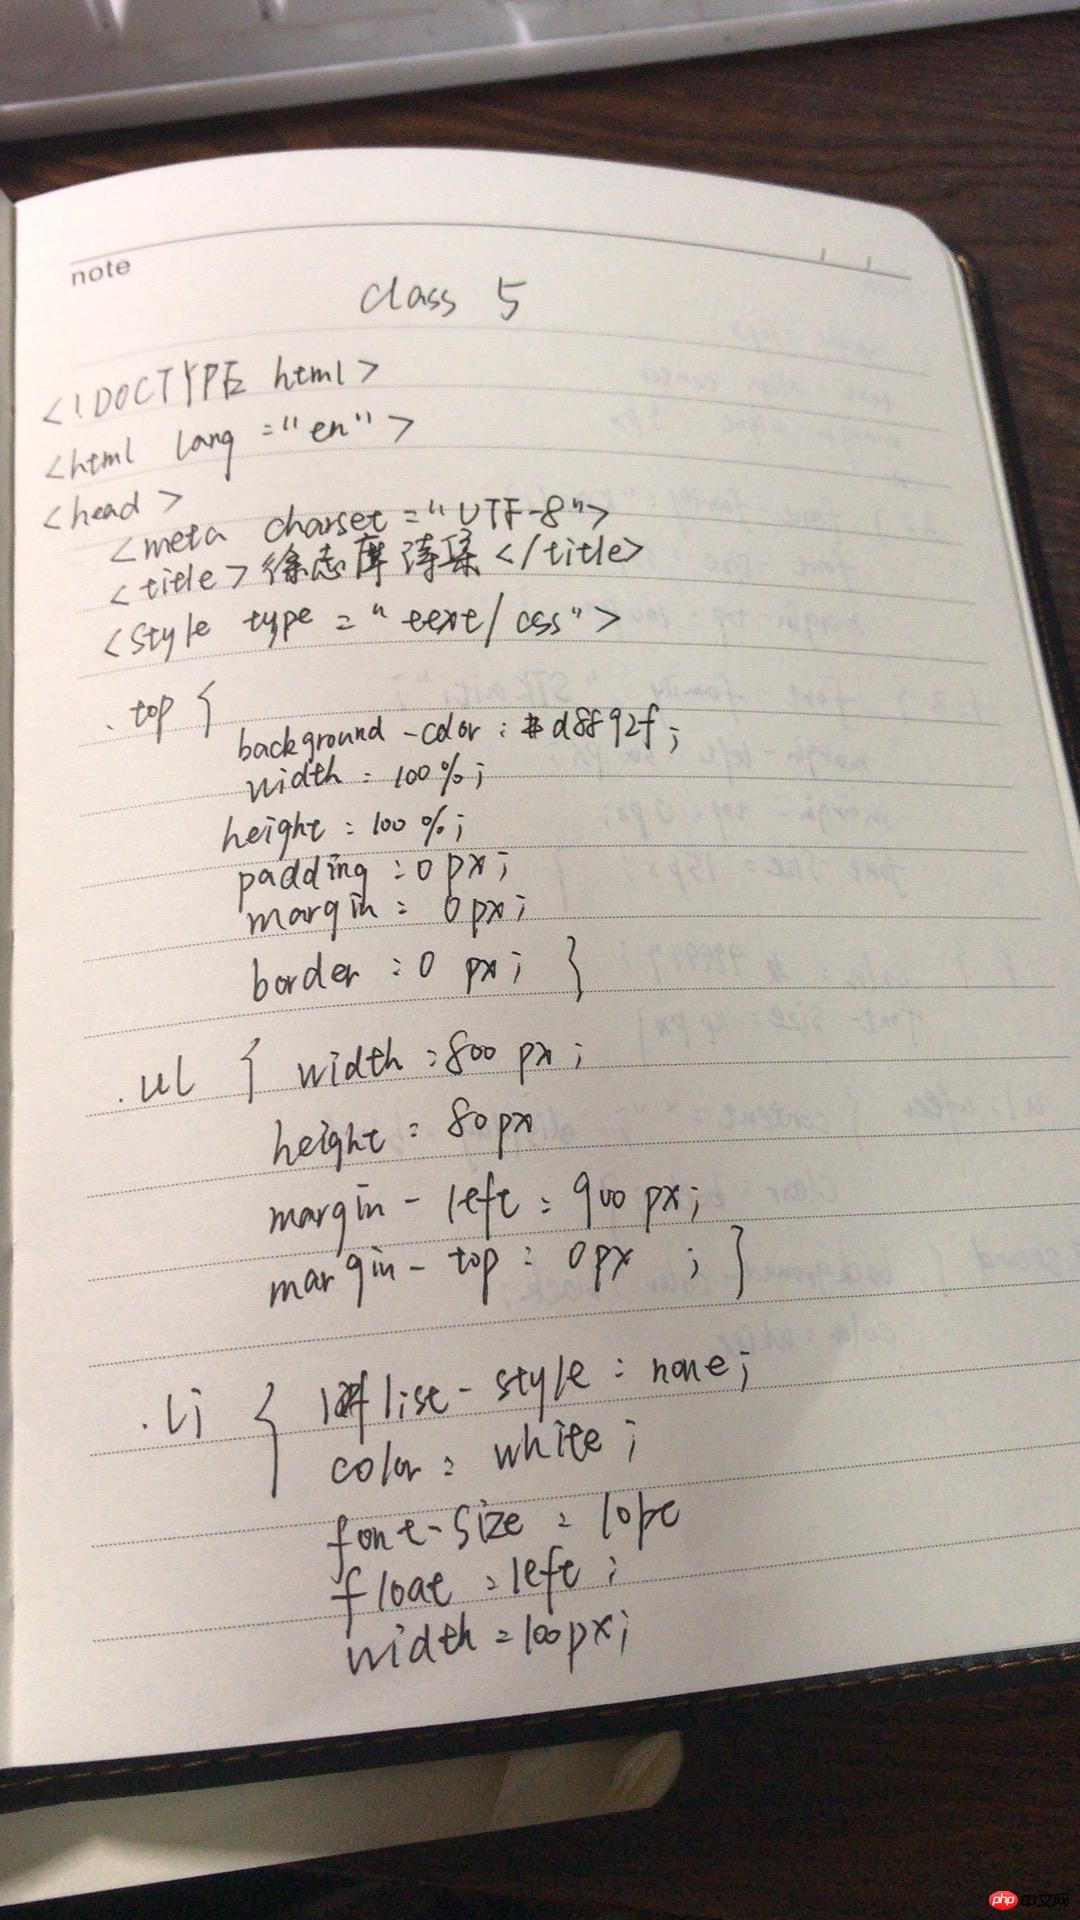 note
class 5
<!DOCTYPE html>
<html lang="en">
<head>
<meta charset="UTF-8">
<title>徐志摩诗集</title>
<style type="text/css">
.top {
background-color:#d8892f;
width:100%;
height:100%;
padding:0px;
margin:0px;
border:0px; }
.ul { width:800px;
height:80px
margin-left:900px;
margin-top:0px; }
.li { list-style:none;
color:white;
font-size:
float:left;
width:100px;
php中文网